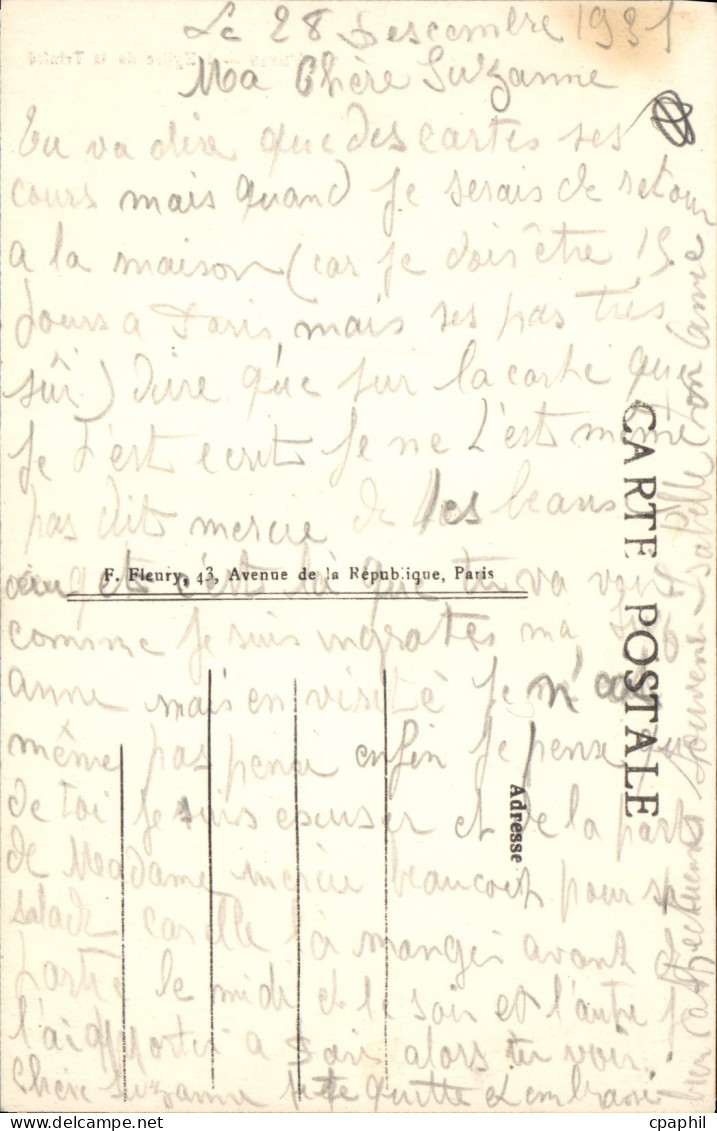 Le 28 Descembre 1931
Ma Chère Suzanne
Tu va dire que des cartes ses
cours mais quand je serais de retour
a la maison (car je dois être 15
jours a Paris mais ses pas très
sûr) dire que sur la carte que
je t'est ecrit je ne t'est même
pas dit mercie de tes beaus
et c'est là que tu va voir
F. Fleury, 43, Avenue de la République, Paris
comme je suis ingrates ma Suz
anne mais en visité je n'
même pas pensé enfin je pense
de toi je suis escuser et de la part
de Madame mercie beaucoup pour sa
salade car elle l'à mangé avant de
partir le midi et le soir et l'autre je
l'ai apporter a Paris alors tu voir.
Chère Suzanne je te quitte et t'embrasse
bien affectueuses souvenir Isabelle bon année
CARTE POSTALE
Adresse
Eglise de la Trinité
cpaphil